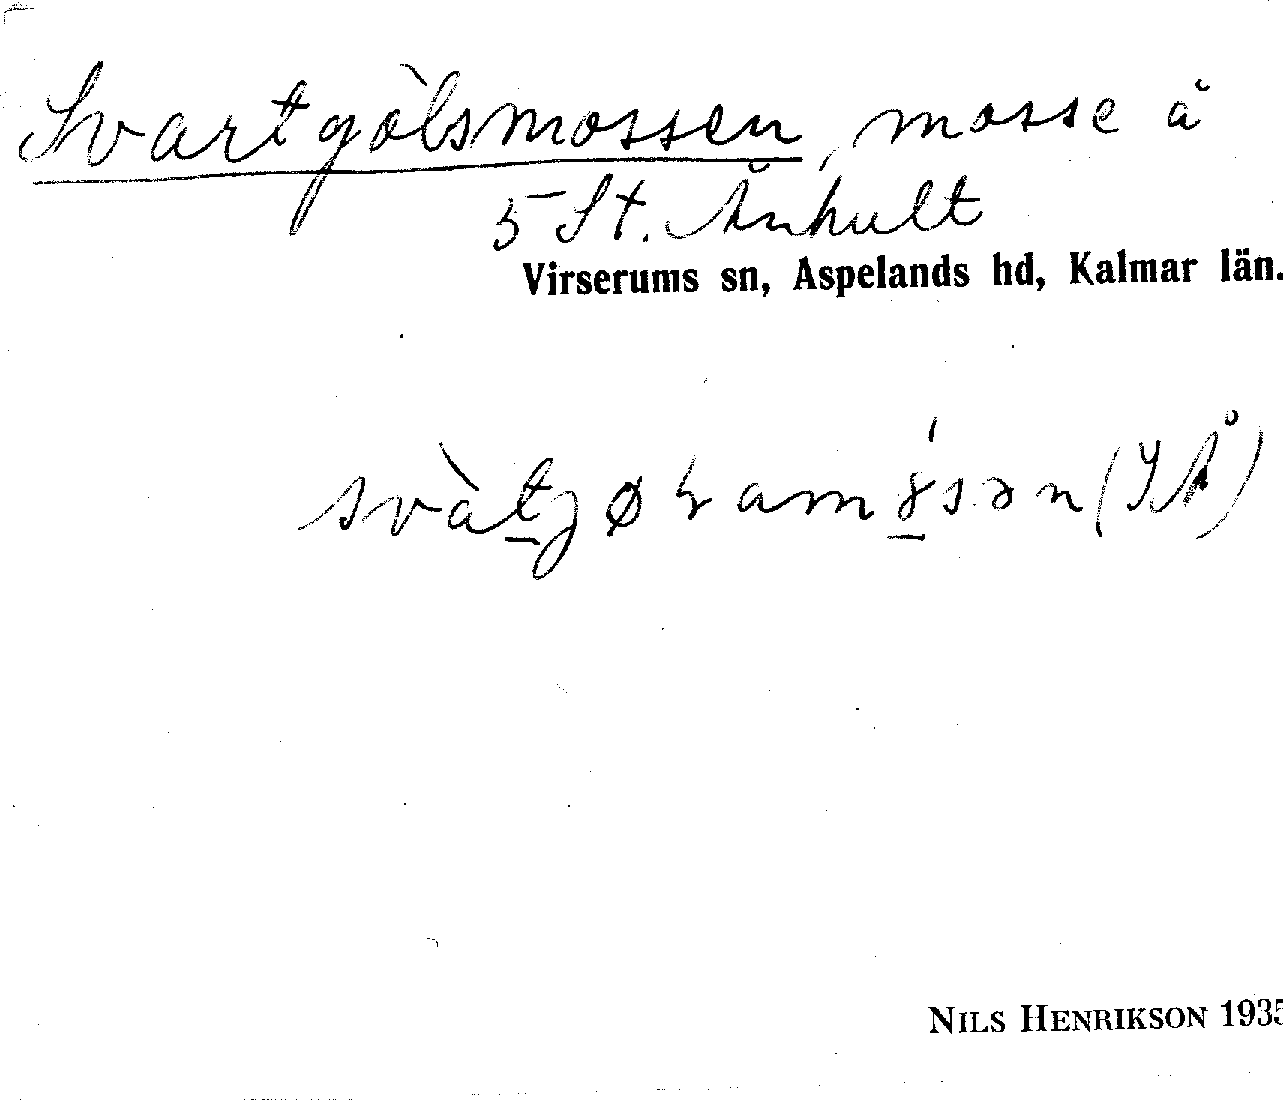 Svartgölsmossen, mosse å
5 St. Ånhult
Virserums sn, Aspelands hd, Kalmar län.
(YÅ)
NILS HENRIKSON 1935